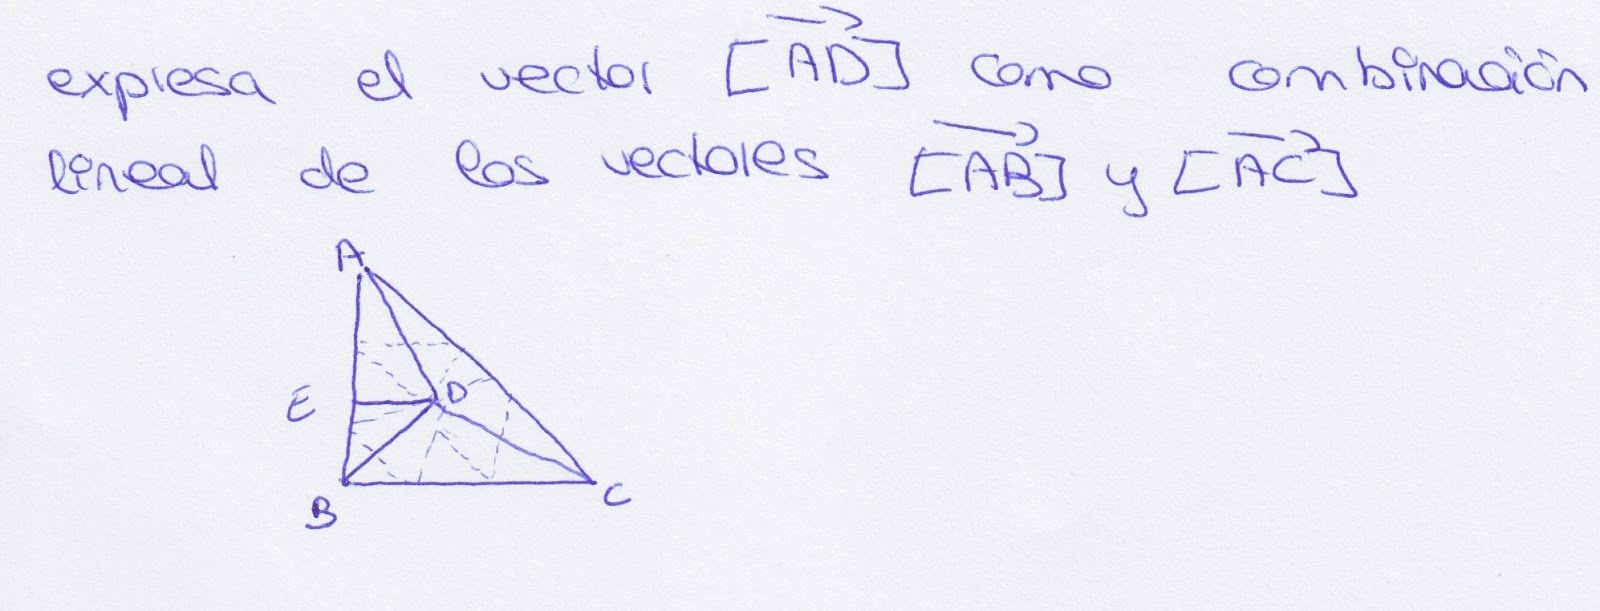 expresa el vector [AD] como combinación
lineal de los vectores [AB] y [AC]
A
E
D
B
C